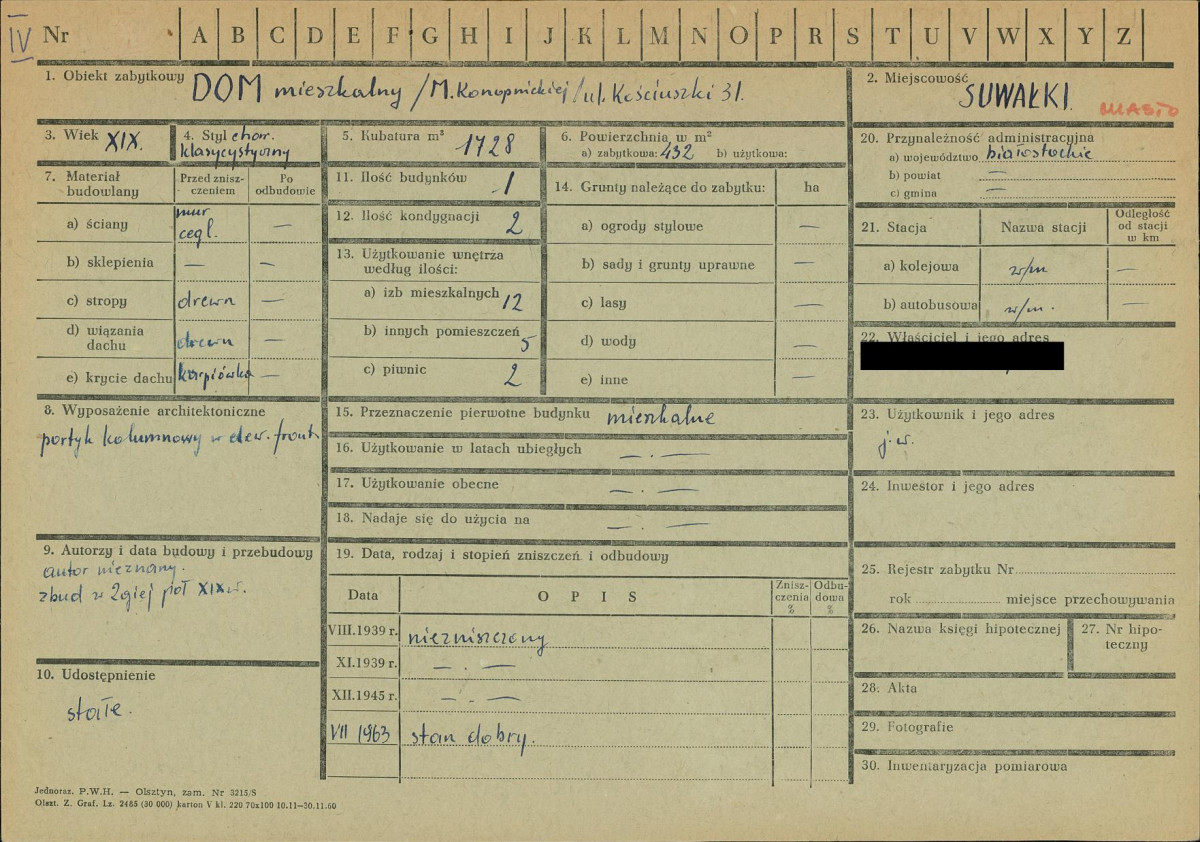 IV Nr A B C D E F G H I J K L M N O P R S T U V W X Y Z
1. Obiekt zabytkowy DOM mieszkalny /M. Konopnickiej/ ul. Kościuszki 31.
2. Miejscowość SUWAŁKI.
MIASTO
3. Wiek XIX.
4. Styl char.
klasycystyczny
5. Kubatura m³ 1728
6. Powierzchnia w m²
a) zabytkowa: 432 b) użytkowa:
7. Materiał
budowlany
Przed znisz-
czeniem
Po
odbudowie
a) ściany mur
cegl. —
b) sklepienia — —
c) stropy drewn —
d) wiązania
dachu drewn —
e) krycie dachu karpiówka —
8. Wyposażenie architektoniczne
portyk kolumnowy w elew. front.
9. Autorzy i data budowy i przebudowy
autor nieznany.
zbud w 2giej poł XIX w.
10. Udostępnienie
stałe.
11. Ilość budynków 1
12. Ilość kondygnacji 2
13. Użytkowanie wnętrza
według ilości:
a) izb mieszkalnych 12
b) innych pomieszczeń 5
c) piwnic 2
14. Grunty należące do zabytku: ha
a) ogrody stylowe —
b) sady i grunty uprawne —
c) lasy —
d) wody —
e) inne —
15. Przeznaczenie pierwotne budynku mieszkalne
16. Użytkowanie w latach ubiegłych — . —
17. Użytkowanie obecne — . —
18. Nadaje się do użycia na — . —
19. Data, rodzaj i stopień zniszczeń i odbudowy
Data OPIS Znisz-
czenia
%
Odbu-
dowa
%
VIII.1939 r. niezniszczony
XI.1939 r. — . —
XII.1945 r. — . —
VII 1963 stan dobry.
20. Przynależność administracyjna
a) województwo białostockie
b) powiat —
c) gmina —
21. Stacja Nazwa stacji Odległość
od stacji
w km
a) kolejowa w/m —
b) autobusowa w/m. —
22. Właściciel i jego adres
23. Użytkownik i jego adres
j.w.
24. Inwestor i jego adres
25. Rejestr zabytku Nr
rok miejsce przechowywania
26. Nazwa księgi hipotecznej
27. Nr hipo-
teczny
28. Akta
29. Fotografie
30. Inwentaryzacja pomiarowa
Jednoraz. P.W.H. — Olsztyn, zam. Nr 3215/S
Olszt. Z. Graf. Lz. 2485 (30 000) karton V kl. 220 70x100 10.11—30.11.60